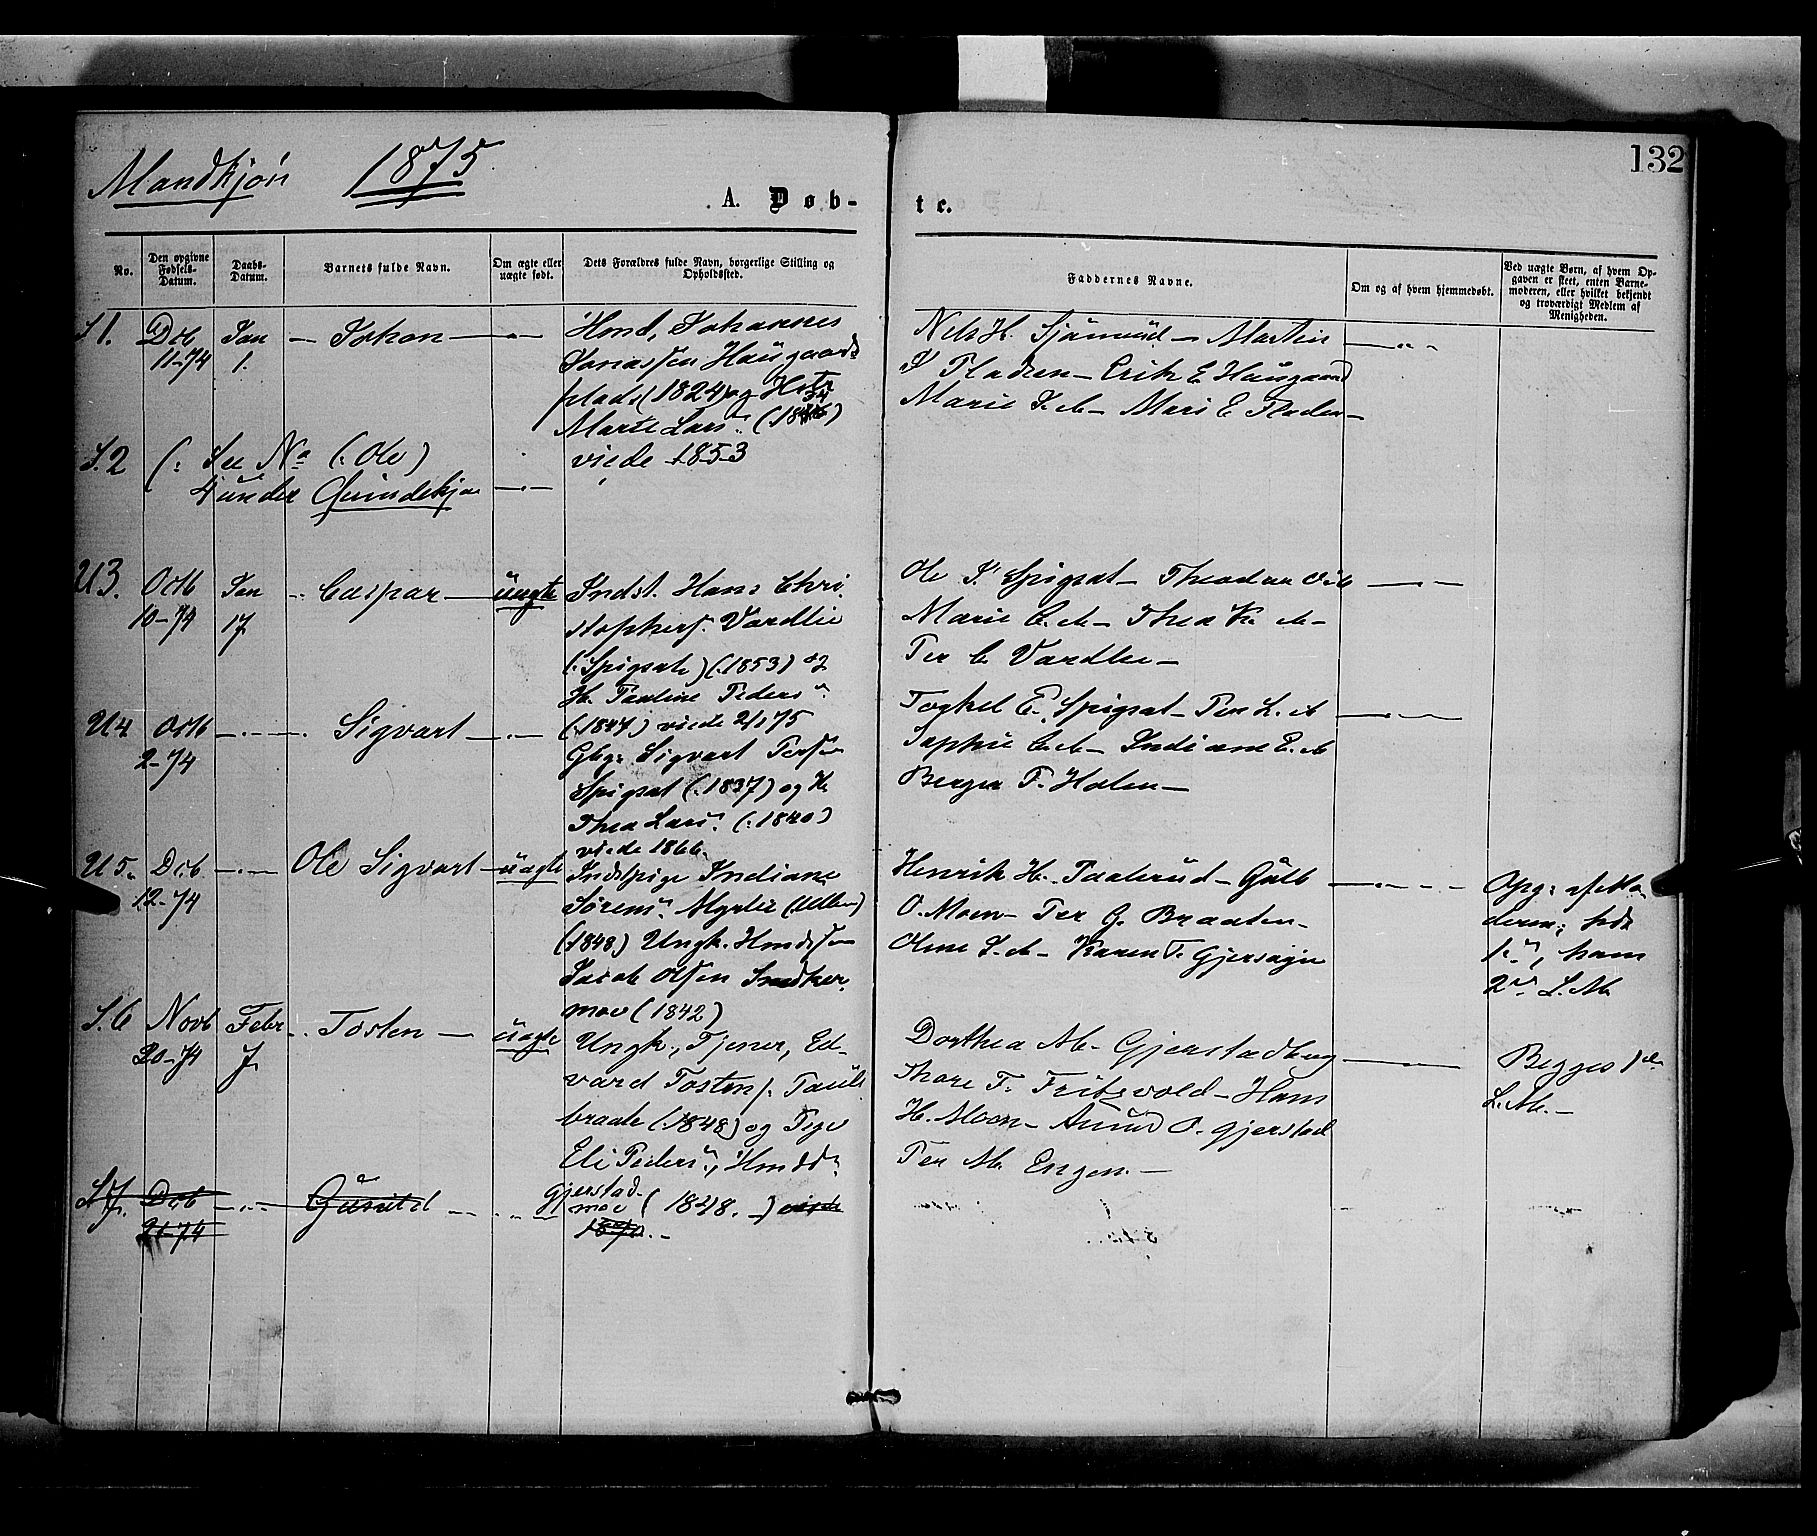 Mandkjøn 1875
132
A. Døb-
te.
No.
Den opgivne Fødsels-Datum.
Daabs-Datum.
Barnets fulde Navn.
Om ægte eller uægte født.
Dets Forældres fulde Navn, borgerlige Stilling og Opholdssted.
Faddernes Navne.
Om og af hvem hjemmedøbt.
Ved uægte Børn, af hvem Opgaven er skeet, enten Barnemoderen, eller hvilket bekjendt og troværdigt Medlem af Menigheden.
S 1. Dcb 11-74 Jan 1. — Johan —
Hmd, Johannes
Jonassen Haugaards
plads (1824) og Hstr
Marte Lars. (1834)
viede 1853
Nels H. — Martin
J Pladsen — Erik E Haugaard
Marie J. M — Mari E Pladsen —
S. 2 (: See No (: Ole)
4 under Qvindekjøn
U 3. Octb 10-74 Jan 17. Caspar — uægte
Indst. Hans Chri-
stophers. Vardlie
(: Spigset) (:1853) og
H. Pauline Peders
(:1847) viede 2/1 75
Ole P. Spigset — Theodor
Marie C. M — Thea K. M —
Per C. Vardlie —
U 4 Octb 2-74 Sigvart
Gbgr Sigvart Persen
Spigset (:1837) og H.
Thea Lars. (:1840)
viede 1866.
Torkel E. Spigset — Per L. M
Sophie C. M — Indiane E. M
Berger T. Holen —
U 5. Dcb 12-74 Ole Sigvart — uægte
Indstpige Indiane
Sørens. Myrlie (Ullern)
(:1848) Ungk. Hmdssøn
Jacob Olsen
moe (1842)
Henrik H. Paalerud — Gulb
O. Moen — Per G. Braaten —
Oline S. M — Karen T. Gjersøyn
Opg: af Mo
deren; hds
1ste, hans
2det L. M.
S. 6 Novb 20-74 Febr 7. Tosten — uægte
Ungk., Tjener, Ed-
vard Tosten s.
braate (:1848) og Pige
Eli Peders., Hmdd.
Gjerstad-
moe (1848. —) viede
1870. —
Dorthea M. Gjerstadberg
Thore T. Fritsvold — Hans
H. Moen — Amund O. Gjerstad
Per M. Engen. —
Begges 1ste
L. M. —
S 7. Dcb 21-74 Gunild